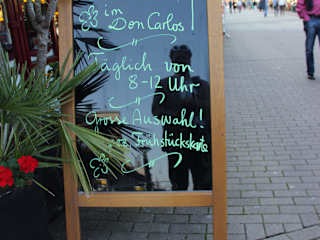 im
Don Carlos!
Täglich von
8-12 Uhr
Grosse Auswahl!
Frühstückskarte